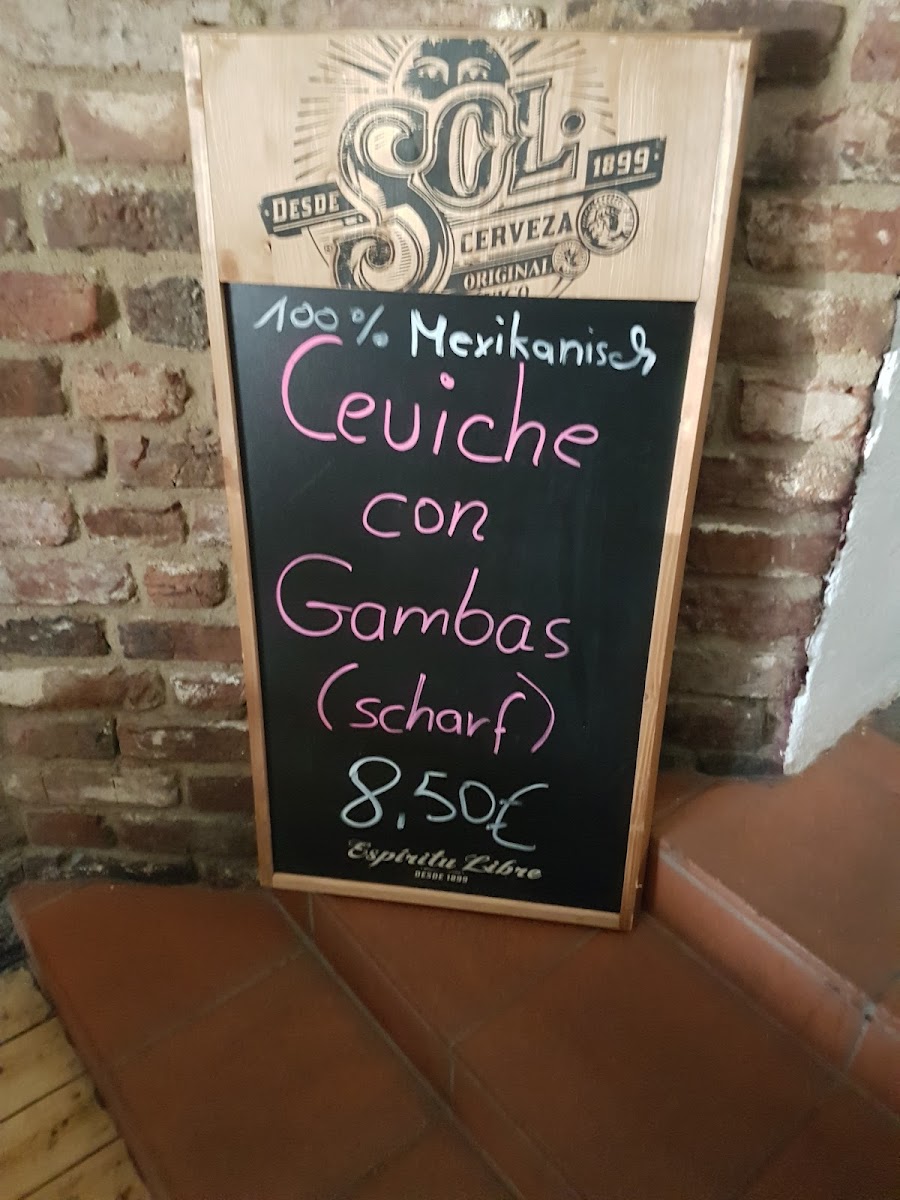 SOL
DESDE 1899
CERVEZA
ORIGINAL
100% Mexikanisch
Ceviche
con
Gambas
(scharf)
8,50€
Espíritu Libre
DESDE 1899